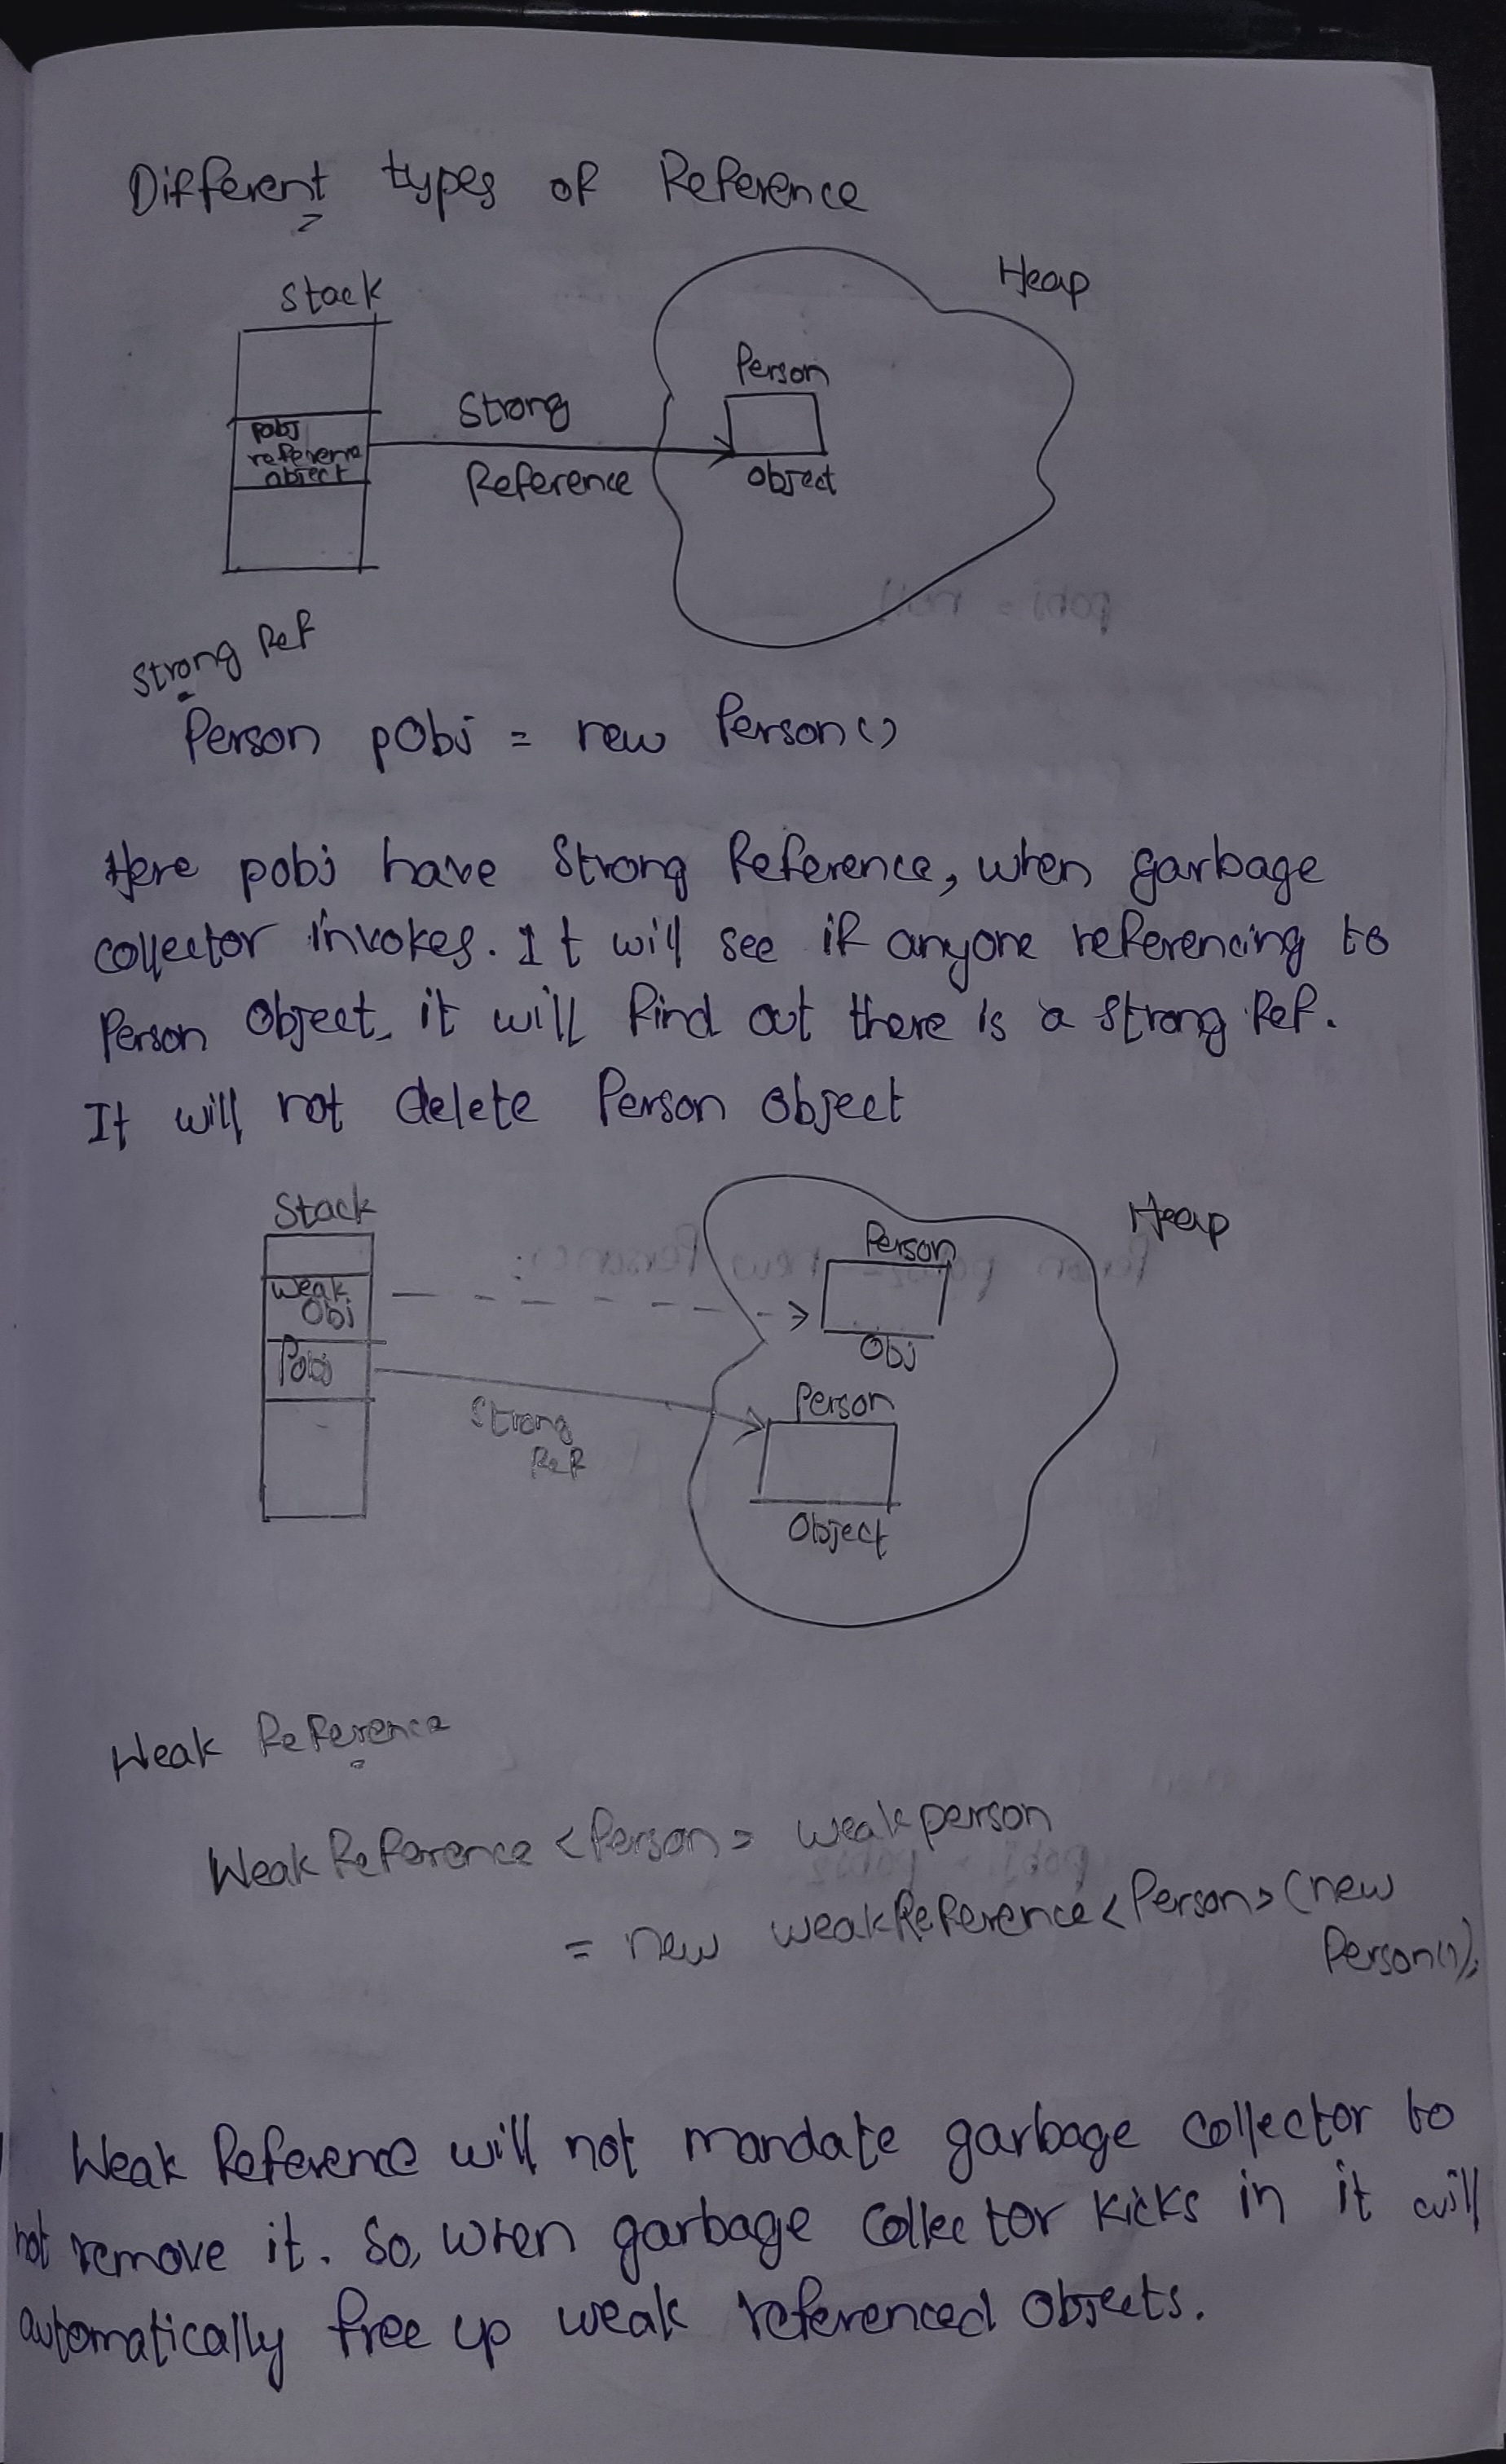 Different types of Reference
Stack
Heap
Person
Strong
pobj
reference
object
Reference
Object
Strong Ref
Person pObj = new Person()
Here pobj have Strong Reference, when garbage
collector invokes. It will see if anyone referencing to
Person Object, it will find out there is a strong Ref.
It will not delete Person Object
Stack
Heap
Person
Weak
Obj
Obj
Pobj
Person
Strong
Ref
Object
Weak Reference
WeakReference <Person> weakperson
= new weakReference<Person>(new
Person());
Weak Reference will not mandate garbage collector to
not remove it. So, when garbage collector kicks in it will
automatically free up weak referenced objects.